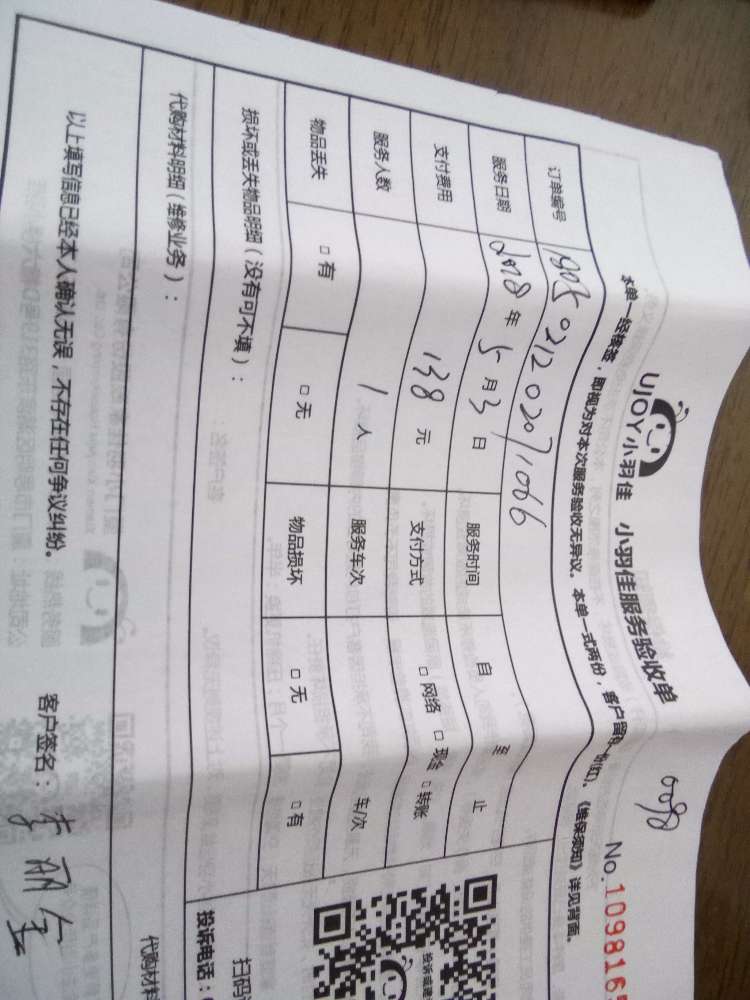 UJOY小羽佳 小羽佳服务验收单
No.109816
本单一经接签，即视为对本次服务验收无异议。本单一式两份，客户留存一份，《维保须知》详见背面。
订单编号 18050212020710
服务日期 2018年5月3日 服务时间 自 至 止
支付费用 138元 支付方式 □网络 □现金 □转账
服务人数 1人 服务车次 车/次
物品丢失 □有 □无 物品损坏 □无 □有
损坏或丢失物品明细（没有可不填）：
代购材料明细（维修业务）：
代购材料
扫码
投诉电话：
以上填写信息已经本人确认无误，不存在任何争议纠纷。 客户签名：李丽金